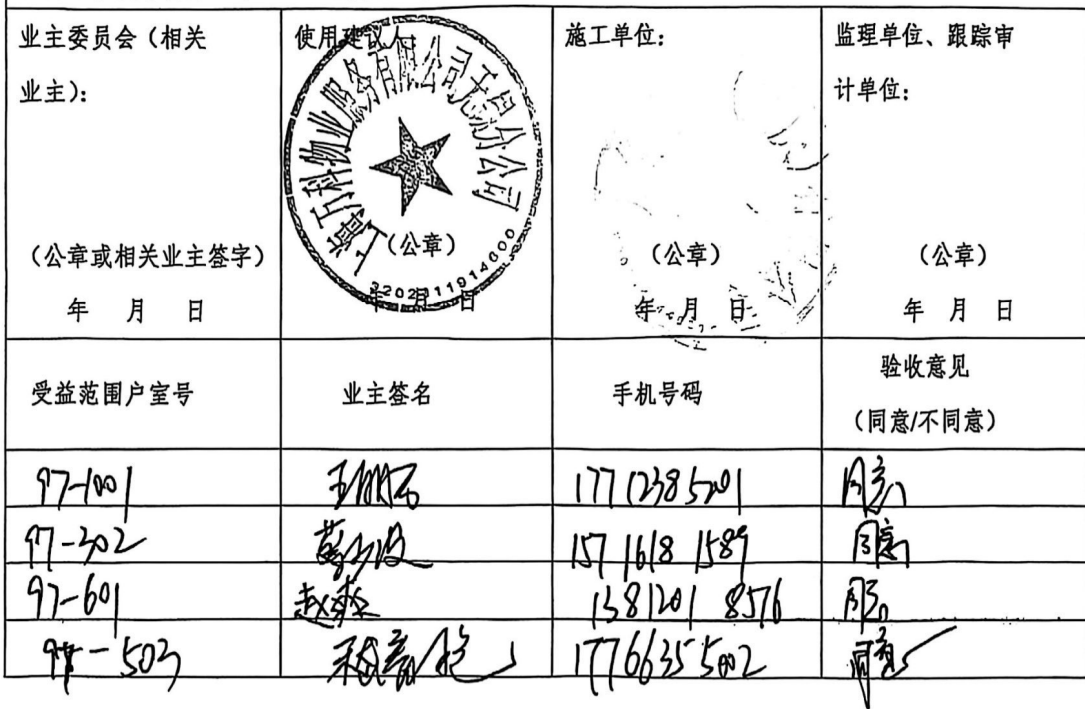 业主委员会（相关
业主）：
（公章或相关业主签字）
年 月 日
使用建议人
上海万科物业服务有限公司无锡分公司
（公章）
3202311914000
年 月 日
施工单位：
（公章）
年 月 日
监理单位、跟踪审
计单位：
（公章）
年 月 日
受益范围户室号 业主签名 手机号码 验收意见
（同意/不同意）
97-1001 17712385201 同意
97-302 157 1618 1589 同意
97-601 赵 1381201 8576 同意
97-503 17766355002 同意